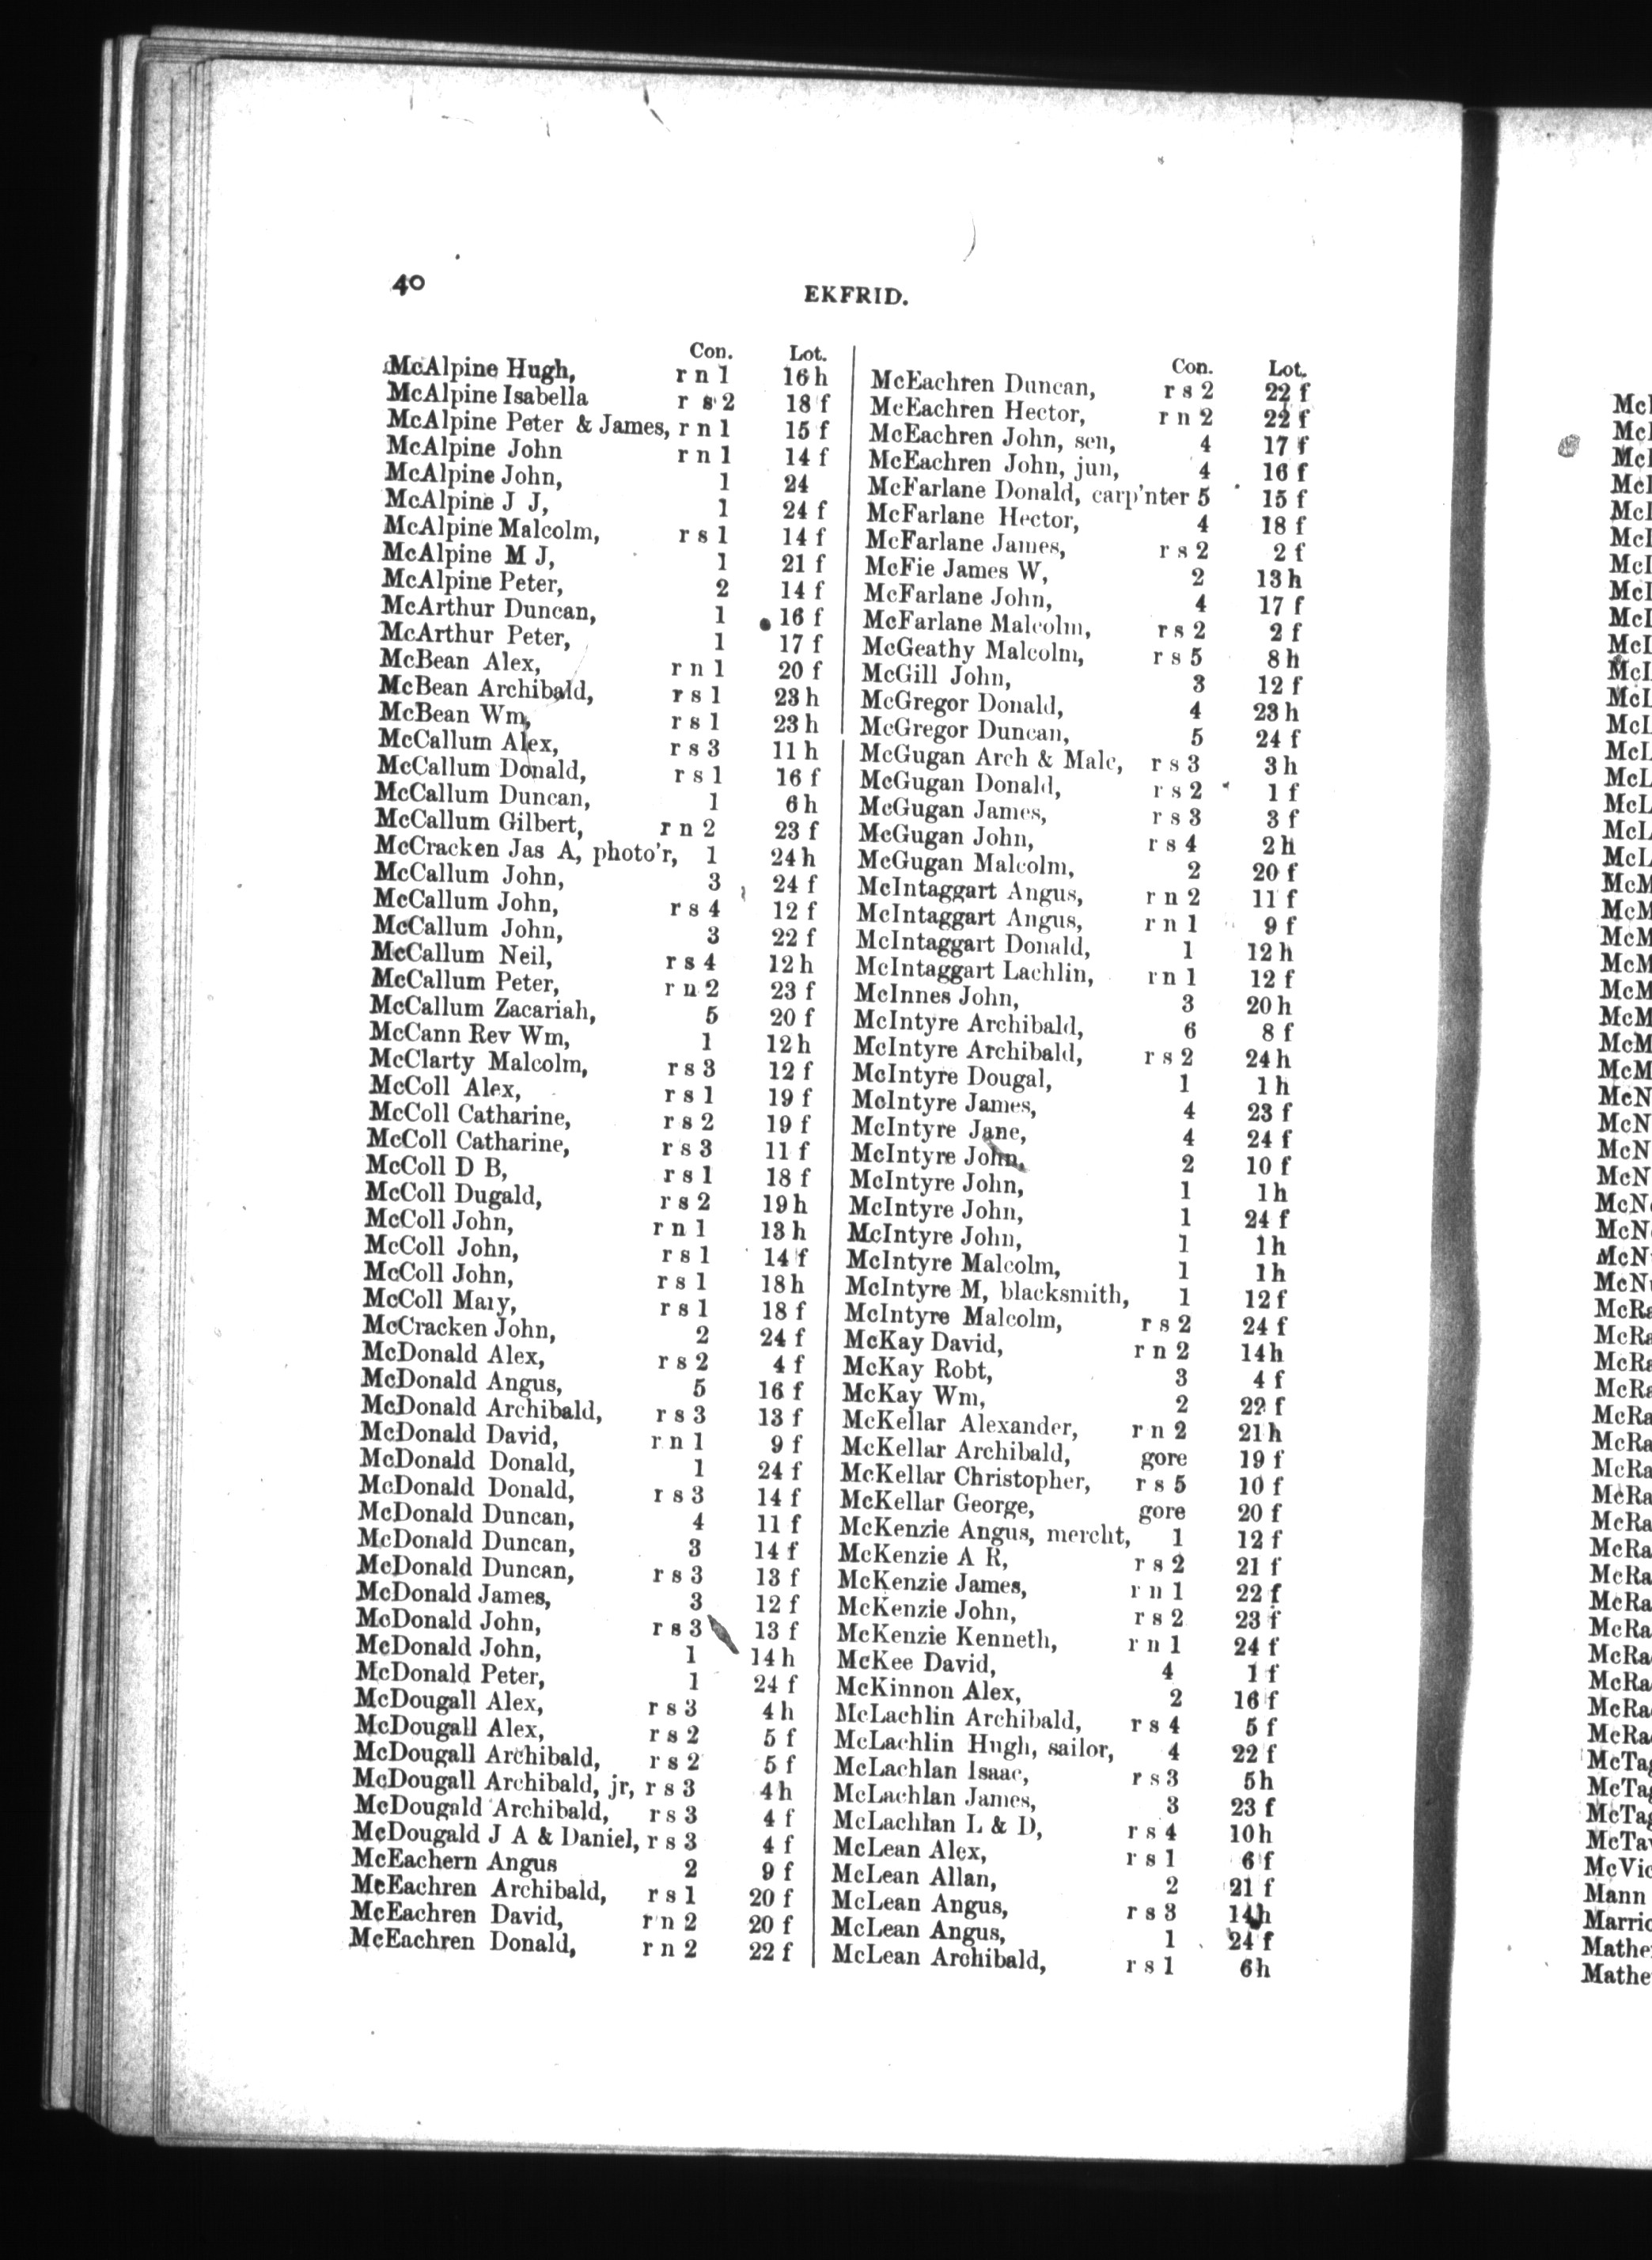 40
EKFRID.
Con. Lot.
McAlpine Hugh, r n 1 16 h
McAlpine Isabella r s 2 18 f
McAlpine Peter & James, r n 1 15 f
McAlpine John r n 1 14 f
McAlpine John, 1 24
McAlpine J J, 1 24 f
McAlpine Malcolm, r s 1 14 f
McAlpine M J, 1 21 f
McAlpine Peter, 2 14 f
McArthur Duncan, 1 16 f
McArthur Peter, 1 17 f
McBean Alex, r n 1 20 f
McBean Archibald, r s 1 23 h
McBean Wm, r s 1 23 h
McCallum Alex, r s 3 11 h
McCallum Donald, r s 1 16 f
McCallum Duncan, 1 6 h
McCallum Gilbert, r n 2 23 f
McCracken Jas A, photo'r, 1 24 h
McCallum John, 3 24 f
McCallum John, r s 4 12 f
McCallum John, 3 22 f
McCallum Neil, r s 4 12 h
McCallum Peter, r n 2 23 f
McCallum Zacariah, 5 20 f
McCann Rev Wm, 1 12 h
McClarty Malcolm, r s 3 12 f
McColl Alex, r s 1 19 f
McColl Catharine, r s 2 19 f
McColl Catharine, r s 3 11 f
McColl D B, r s 1 18 f
McColl Dugald, r s 2 19 h
McColl John, r n 1 13 h
McColl John, r s 1 14 f
McColl John, r s 1 18 h
McColl Mary, r s 1 18 f
McCracken John, 2 24 f
McDonald Alex, r s 2 4 f
McDonald Angus, 5 16 f
McDonald Archibald, r s 3 13 f
McDonald David, r n 1 9 f
McDonald Donald, 1 24 f
McDonald Donald, r s 3 14 f
McDonald Duncan, 4 11 f
McDonald Duncan, 3 14 f
McDonald Duncan, r s 3 13 f
McDonald James, 3 12 f
McDonald John, r s 3 13 f
McDonald John, 1 14 h
McDonald Peter, 1 24 f
McDougall Alex, r s 3 4 h
McDougall Alex, r s 2 5 f
McDougall Archibald, r s 2 5 f
McDougall Archibald, jr, r s 3 4 h
McDougald Archibald, r s 3 4 f
McDougald J A & Daniel, r s 3 4 f
McEachern Angus 2 9 f
McEachren Archibald, r s 1 20 f
McEachren David, r n 2 20 f
McEachren Donald, r n 2 22 f
Con. Lot.
McEachren Duncan, r s 2 22 f
McEachren Hector, r n 2 22 f
McEachren John, sen, 4 17 f
McEachren John, jun, 4 16 f
McFarlane Donald, carp'nter 5 15 f
McFarlane Hector, 4 18 f
McFarlane James, r s 2 2 f
McFie James W, 2 13 h
McFarlane John, 4 17 f
McFarlane Malcolm, r s 2 2 f
McGeathy Malcolm, r s 5 8 h
McGill John, 3 12 f
McGregor Donald, 4 23 h
McGregor Duncan, 5 24 f
McGugan Arch & Malc, r s 3 3 h
McGugan Donald, r s 2 1 f
McGugan James, r s 3 3 f
McGugan John, r s 4 2 h
McGugan Malcolm, 2 20 f
McIntaggart Angus, r n 2 11 f
McIntaggart Angus, r n 1 9 f
McIntaggart Donald, 1 12 h
McIntaggart Lachlin, r n 1 12 f
McInnes John, 3 20 h
McIntyre Archibald, 6 8 f
McIntyre Archibald, r s 2 24 h
McIntyre Dougal, 1 1 h
McIntyre James, 4 23 f
McIntyre Jane, 4 24 f
McIntyre John, 2 10 f
McIntyre John, 1 1 h
McIntyre John, 1 24 f
McIntyre John, 1 1 h
McIntyre Malcolm, 1 1 h
McIntyre M, blacksmith, 1 12 f
McIntyre Malcolm, r s 2 24 f
McKay David, r n 2 14 h
McKay Robt, 3 4 f
McKay Wm, 2 22 f
McKellar Alexander, r n 2 21 h
McKellar Archibald, gore 19 f
McKellar Christopher, r s 5 10 f
McKellar George, gore 20 f
McKenzie Angus, mercht, 1 12 f
McKenzie A R, r s 2 21 f
McKenzie James, r n 1 22 f
McKenzie John, r s 2 23 f
McKenzie Kenneth, r n 1 24 f
McKee David, 4 1 f
McKinnon Alex, 2 16 f
McLachlin Archibald, r s 4 5 f
McLachlin Hugh, sailor, 4 22 f
McLachlan Isaac, r s 3 5 h
McLachlan James, 3 23 f
McLachlan L & D, r s 4 10 h
McLean Alex, r s 1 6 f
McLean Allan, 2 21 f
McLean Angus, r s 3 14 h
McLean Angus, 1 24 f
McLean Archibald, r s 1 6 h